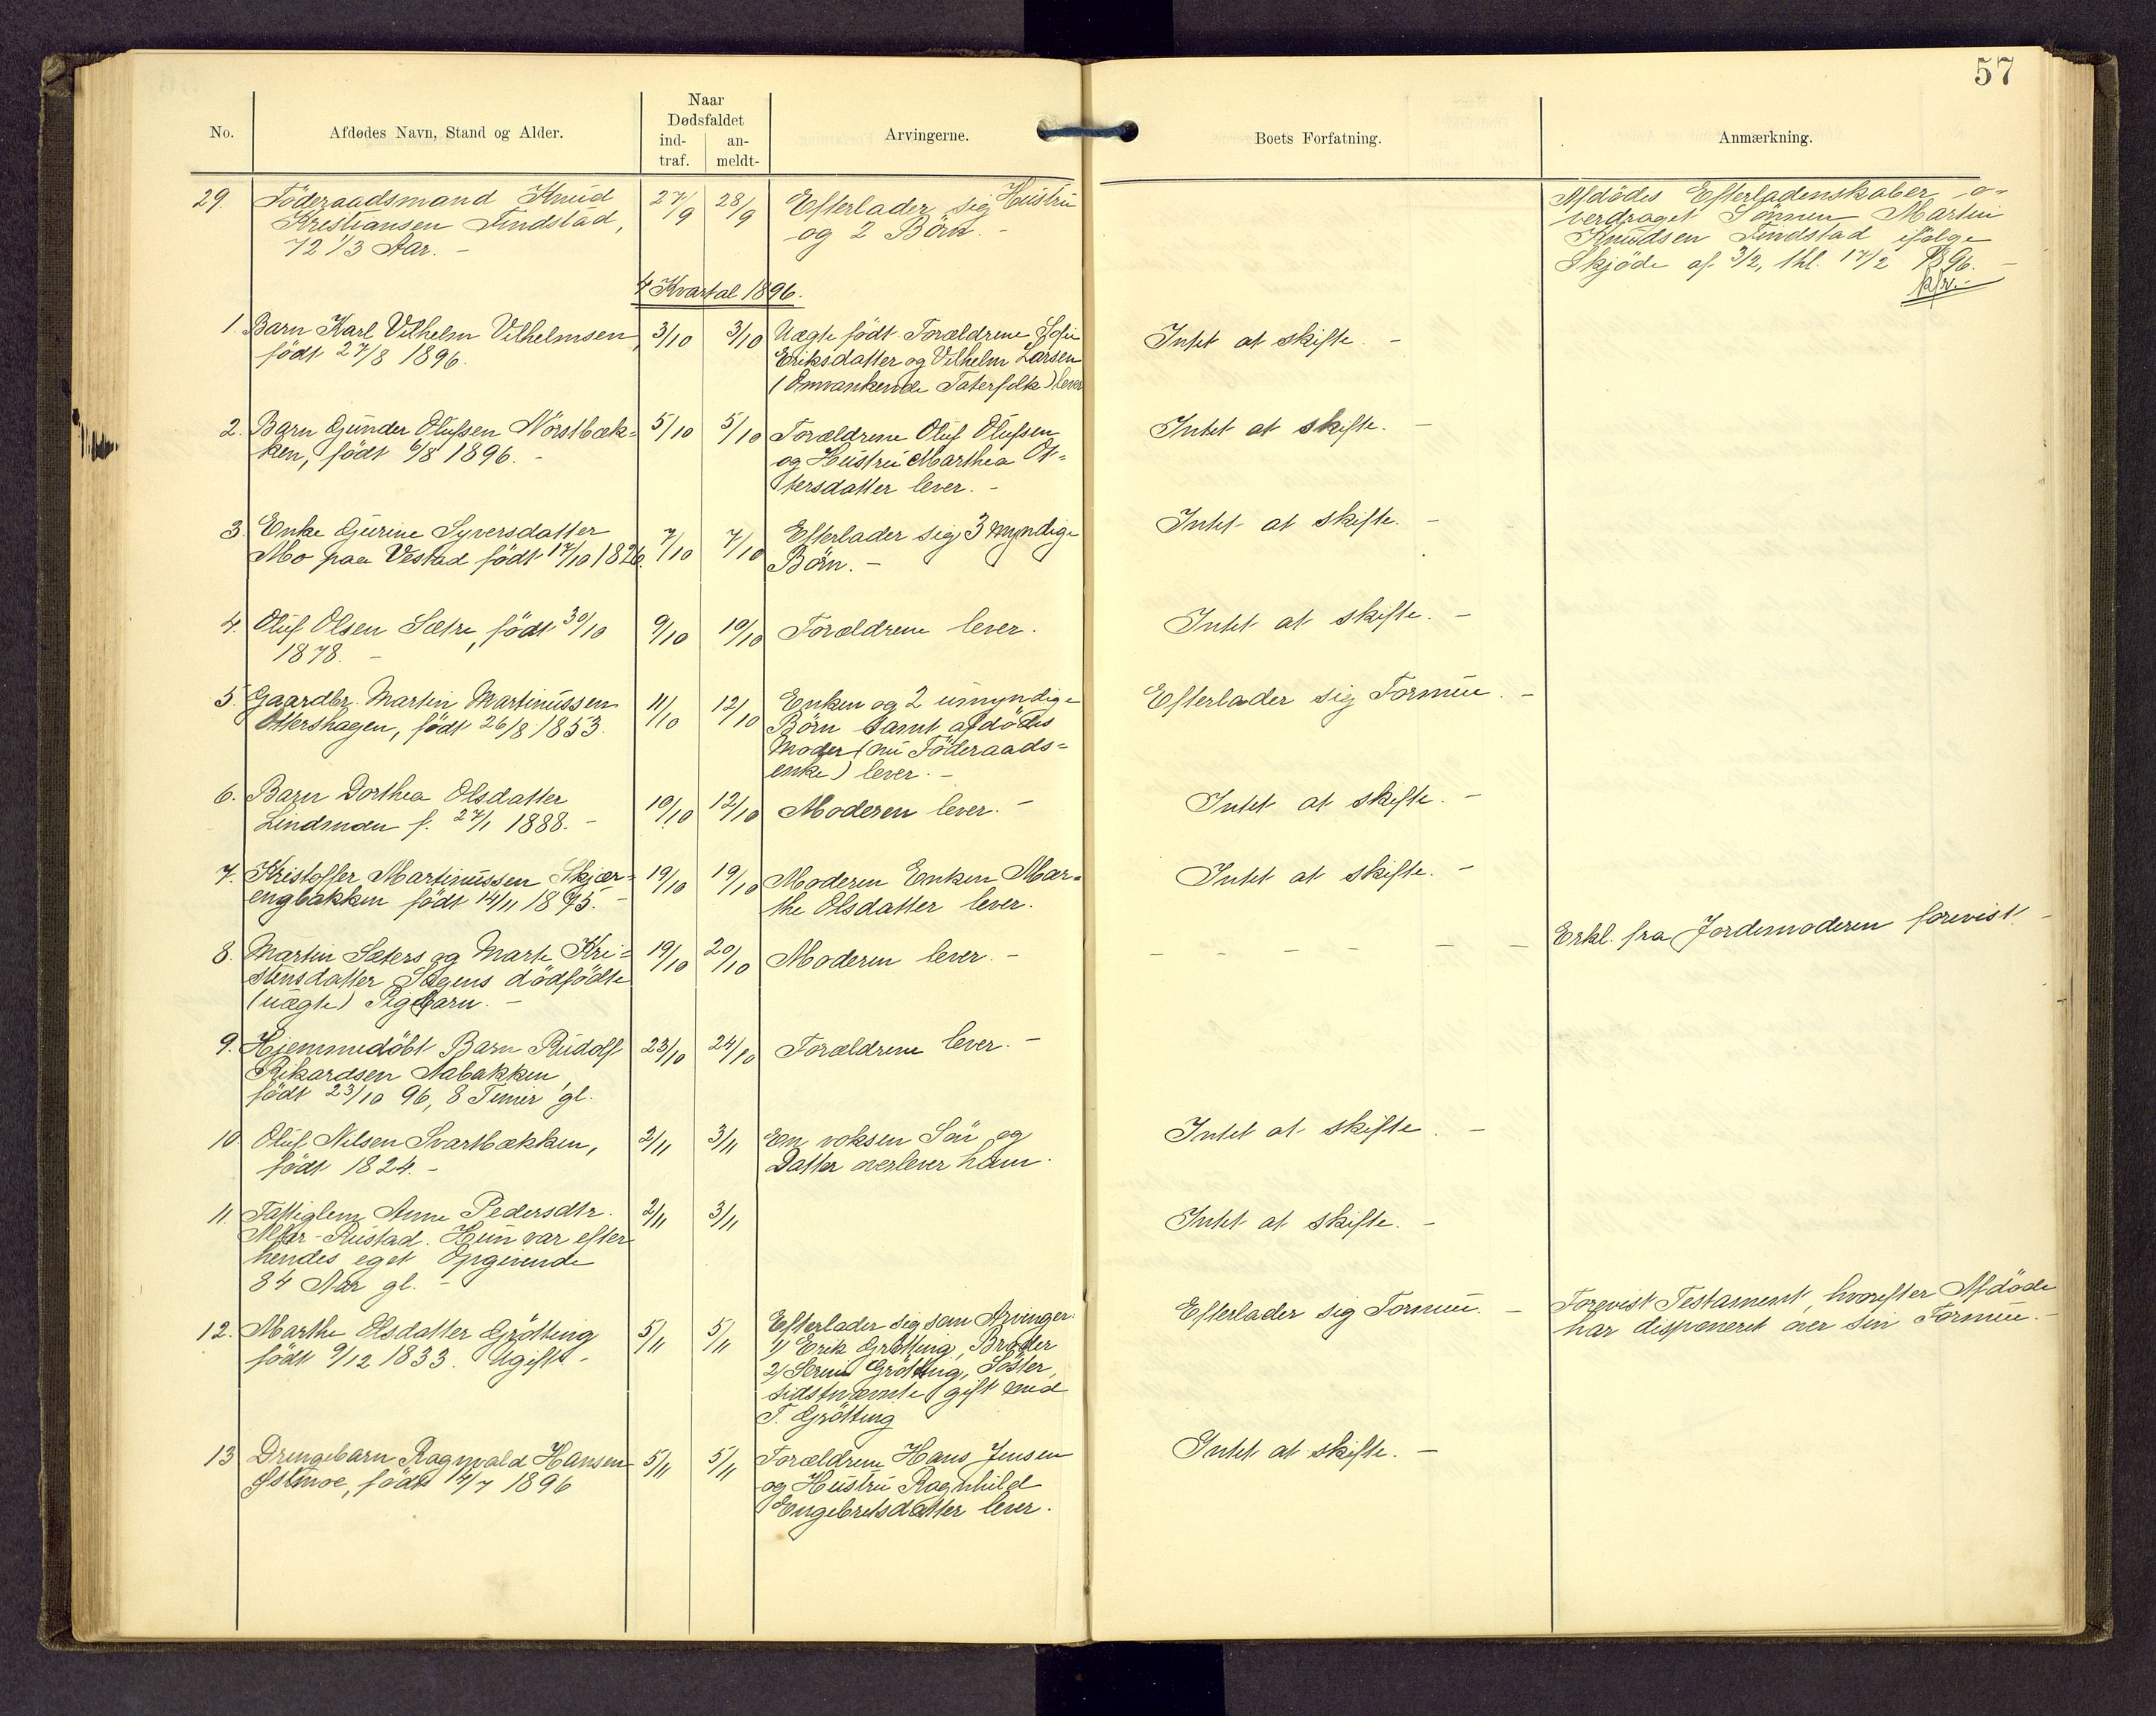 57
No.
Afdødes Navn, Stand og Alder.
Naar
Dødsfaldet
ind-
traf.
an-
meldt-
Arvingerne.
Boets Forfatning.
Anmærkning.
29. Föderaadsmand Knud
Kristiansen Tindstad,
72 1/3 Aar. -
27/9 28/9
Efterlader sig Hustru
og 2 Börn. -
Afdödes Efterladenskaber o-
verdraget Sönnen Martin
Knudsen Tindstad ifölge
Skjöde af 3/2, thl. 17/2 1896. -
4 Kvartal 1896.
1. Barn Karl Vilhelm Vilhelmsen,
födt 27/8 1896.
3/10 3/10
Uægte födt. Forældrene Sofie
Eriksdatter og Vilhelm Larsen
(Omvankende Taterfolk) lever
Intet at skifte. -
2. Barn Gunder Olufsen Nörstbæk=
ken, födt 6/8 1896. -
5/10 5/10
Forældrene Oluf Olufsen
og Hustru Marthea Ot=
tersdatter lever. -
Intet at skifte. -
3. Enke Gurine Syversdatter
Mo paa Vestad födt 17/10 1826.
7/10 7/10
Efterlader sig 3 myndige
Börn. -
Intet at skifte. -
4. Oluf Olsen Sætre, födt 30/10
1878. -
9/10 10/10
Forældrene lever.
Intet at skifte. -
5. Gaardbr. Martin Martinussen
Ottershagen, födt 26/8 1853.
11/10 12/10
Enken og 2 umyndige
Börn samt afdödes
Moder (nu Föderaads=
enke) lever. -
Efterlader sig Formue. -
6. Barn Dorthea Olsdatter
Lindmoen f. 27/1 1888. -
10/10 12/10
Moderen lever. -
Intet at skifte. -
7. Kristoffer Martinussen Skjær=
engbakken födt 14/11 1875. -
19/10 19/10
Moderen Enken Mar=
the Olsdatter lever.
Intet at skifte. -
8. Martin Sæters og Marte Kri=
stensdatter Sagens dödfödte
(uægte) Pigebarn. -
19/10 20/10
Moderen lever. -
- - - - - -
Erkl. fra Jordemoderen forevist. -
9. Hjemmedöbt Barn Rudolf
Rikardsen Aabakken,
födt 23/10 96, 8 Timer gl.
23/10 24/10
Forældrene lever. -
10. Oluf Nilsen Svartbækken,
födt 1824. -
2/11 3/11
En voksen Sön og
Datter overlever ham.
Intet at skifte. -
11. Fattiglem Anne Pedersdtr.
-Rustad. Hun var efter
hendes eget Opgivende
84 Aar gl. -
2/11 3/11
Intet at skifte. -
12. Marthe Olsdatter Grötting
födt 9/12 1833. Ugift -
5/11 5/11
Efterlader sig som Arvinger:
1/ Erik Grötting, Broder
2/ Serine Grötting, Söster,
sidstnævnte gift med
T. Grötting
Efterlader sig Formue. -
Forevist Testament, hvorefter Afdöde
har disponeret over sin Formue. -
13 Drengebarn Ragnvald Hansen
Østmoe, födt 14/7 1896
5/11 5/11
Forældrene Hans Jensen
og Hustru Ragnhild
Engebretsdatter lever.
Intet at skifte. -